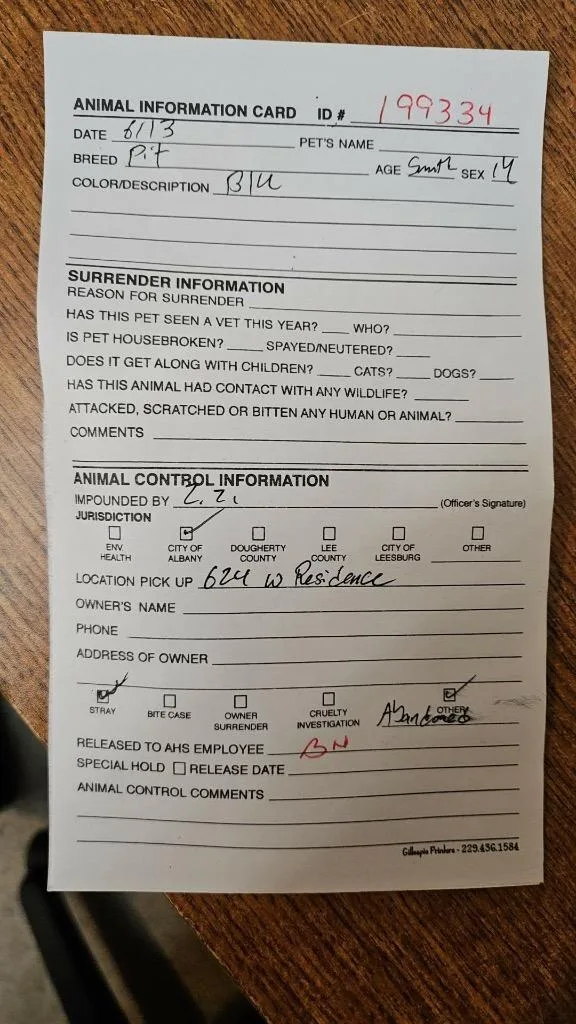 ANIMAL INFORMATION CARD ID # 199334
DATE 6/13 PET'S NAME
BREED Pit AGE 5mth SEX M
COLOR/DESCRIPTION Blu
SURRENDER INFORMATION
REASON FOR SURRENDER
HAS THIS PET SEEN A VET THIS YEAR? WHO?
IS PET HOUSEBROKEN? SPAYED/NEUTERED?
DOES IT GET ALONG WITH CHILDREN? CATS? DOGS?
HAS THIS ANIMAL HAD CONTACT WITH ANY WILDLIFE?
ATTACKED, SCRATCHED OR BITTEN ANY HUMAN OR ANIMAL?
COMMENTS
ANIMAL CONTROL INFORMATION
IMPOUNDED BY (Officer's Signature)
JURISDICTION
ENV. HEALTH
CITY OF ALBANY
DOUGHERTY COUNTY
LEE COUNTY
CITY OF LEESBURG
OTHER
LOCATION PICK UP 624 W Residence
OWNER'S NAME
PHONE
ADDRESS OF OWNER
STRAY
BITE CASE
OWNER SURRENDER
CRUELTY INVESTIGATION
OTHER Abandoned
RELEASED TO AHS EMPLOYEE BN
SPECIAL HOLD RELEASE DATE
ANIMAL CONTROL COMMENTS
Gillespie Printers - 229.436.1584